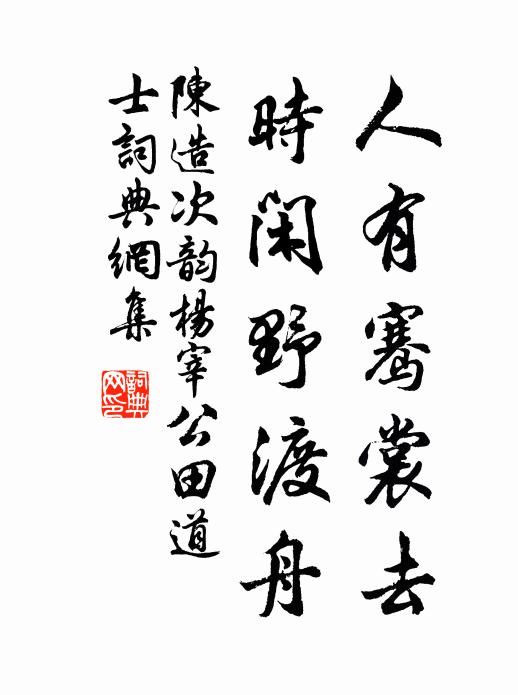 人有騫裳去
時閑野渡舟
陳造次韵楊宰公田道
士詞典網集
詞典
网印